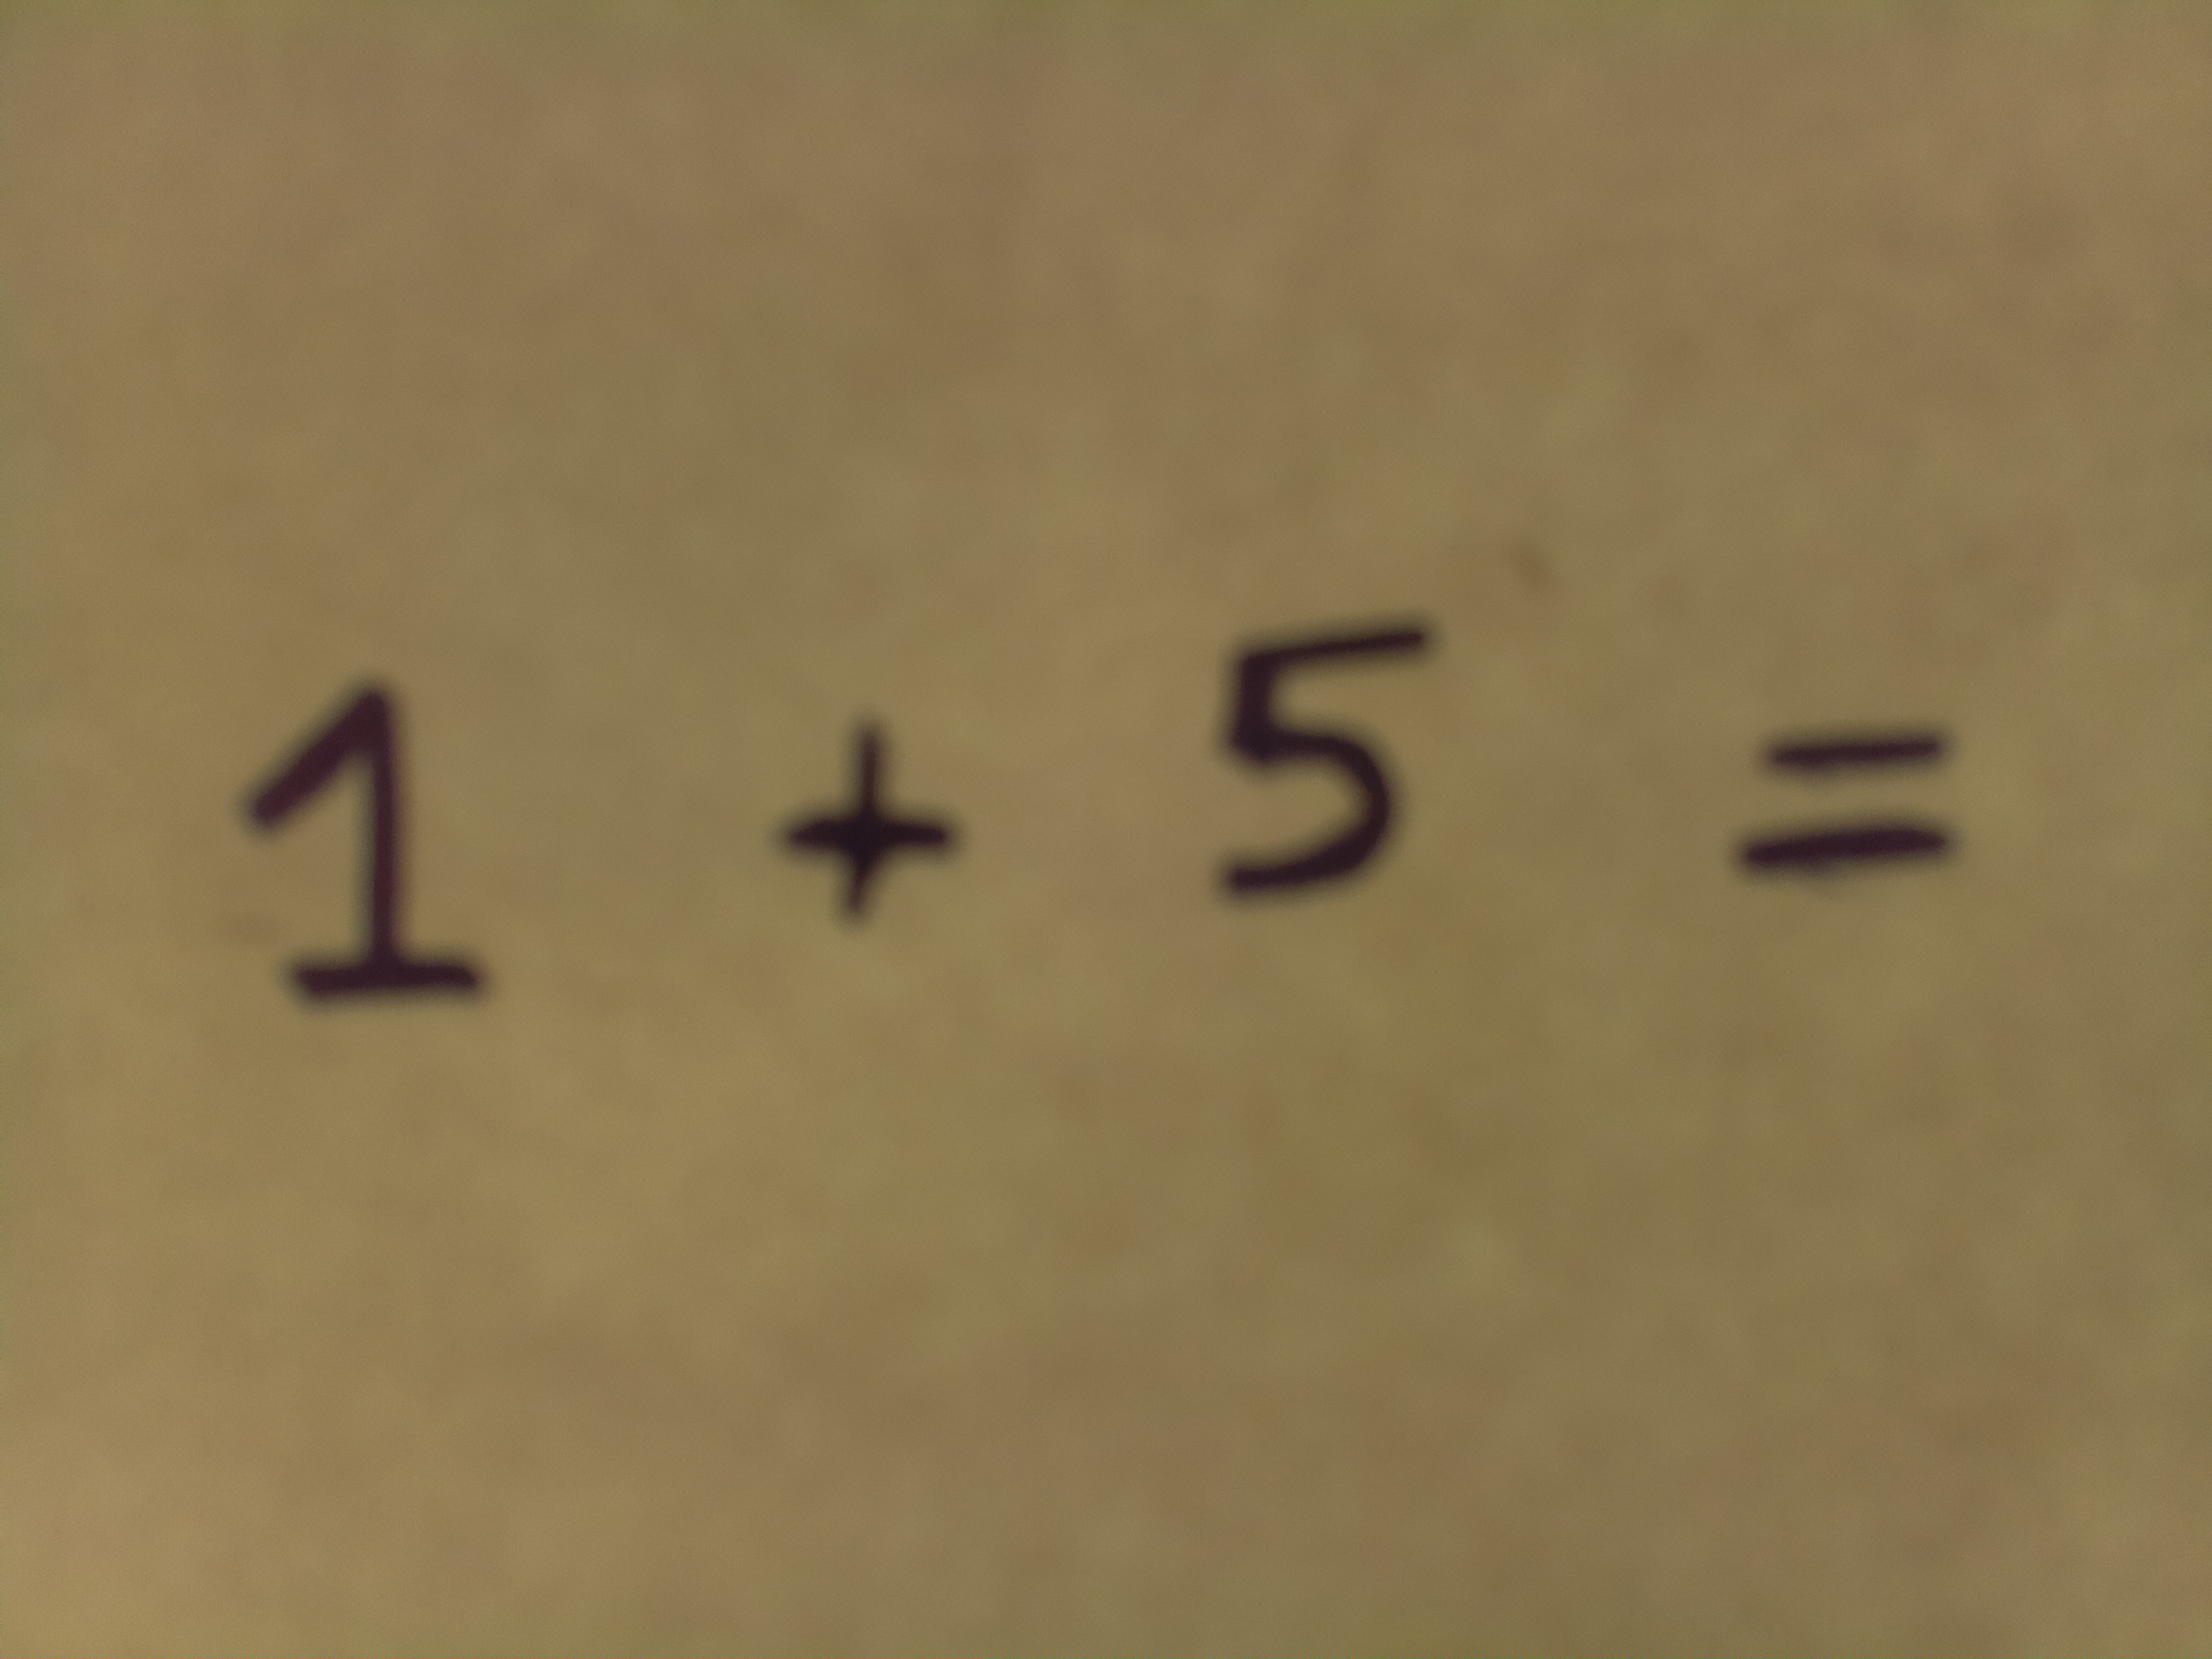 1 + 5 =